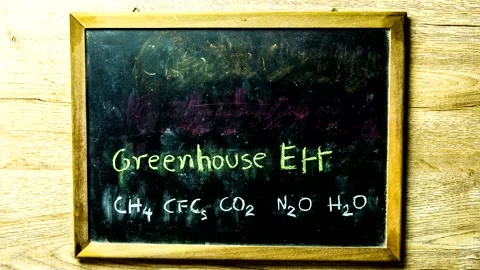 Greenhouse Eff
CH4 CFCs CO2 N2O H2O